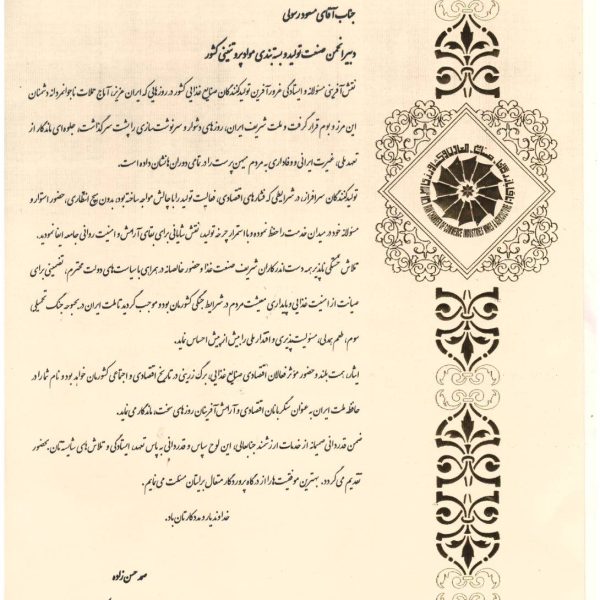 جناب آقای مسعود رسولی
دبیر انجمن صنعت تولید و بسته‌بندی مواد پروتئینی کشور
نقش‌آفرینی مسئولانه و ایستادگی غرورآفرین تولیدکنندگان صنایع غذایی کشور در روزهایی که ایران عزیز، آماج حملات ناجوانمردانه دشمنان
این مرز و بوم قرار گرفت و ملت شریف ایران، روزهای دشوار و سرنوشت‌سازی را پشت سر گذاشت، جلوه‌ای ماندگار از
تعهد ملی، غیرت ایرانی و وفاداری به مردم میهن‌پرست را در تمامی دوران‌ها نشان داده است.
تولیدکنندگان سرافراز، در شرایطی که فشارهای اقتصادی، فعالیت تولید را با چالش مواجه ساخته بود، بدون هیچ انتظاری، حضور استوار و
مسئولانه خود در میدان خدمت را حفظ نموده و با استمرار چرخه تولید، نقش شایانی برای بقای آرامش و امنیت روانی جامعه ایفا نمودید.
تلاش خستگی‌ناپذیر همه دست‌اندرکاران شریف صنعت غذا و حضور خالصانه در همراهی با سیاست‌های دولت محترم، تضمینی برای
صیانت از امنیت غذایی و پایداری معیشت مردم در شرایط جنگی کشورمان بوده و موجب گردید تا ملت ایران در بحبوحه جنگ تحمیلی
سوم، طعم همدلی، مسئولیت‌پذیری و اقتدار ملی را بیش از پیش احساس نماید.
ایثار، همت بلند و حضور مؤثر فعالان اقتصادی صنایع غذایی، برگ زرینی در تاریخ اقتصادی و اجتماعی کشورمان خواهد بود و نام شما را در
حافظه ملت ایران به عنوان سنگربانان اقتصادی و آرامش‌آفرینان روزهای سخت، ماندگار می‌نماید.
ضمن قدردانی صمیمانه از خدمات ارزشمند جنابعالی، این لوح سپاس و قدردانی به پاس تعهد، ایستادگی و تلاش‌های شایسته‌تان بحضور
تقدیم می‌گردد. بهترین موفقیت‌ها را از درگاه پروردگار متعال برایتان مسئلت می‌نمایم.
خداوند یار و مددکارتان باد.
صمد حسن زاده